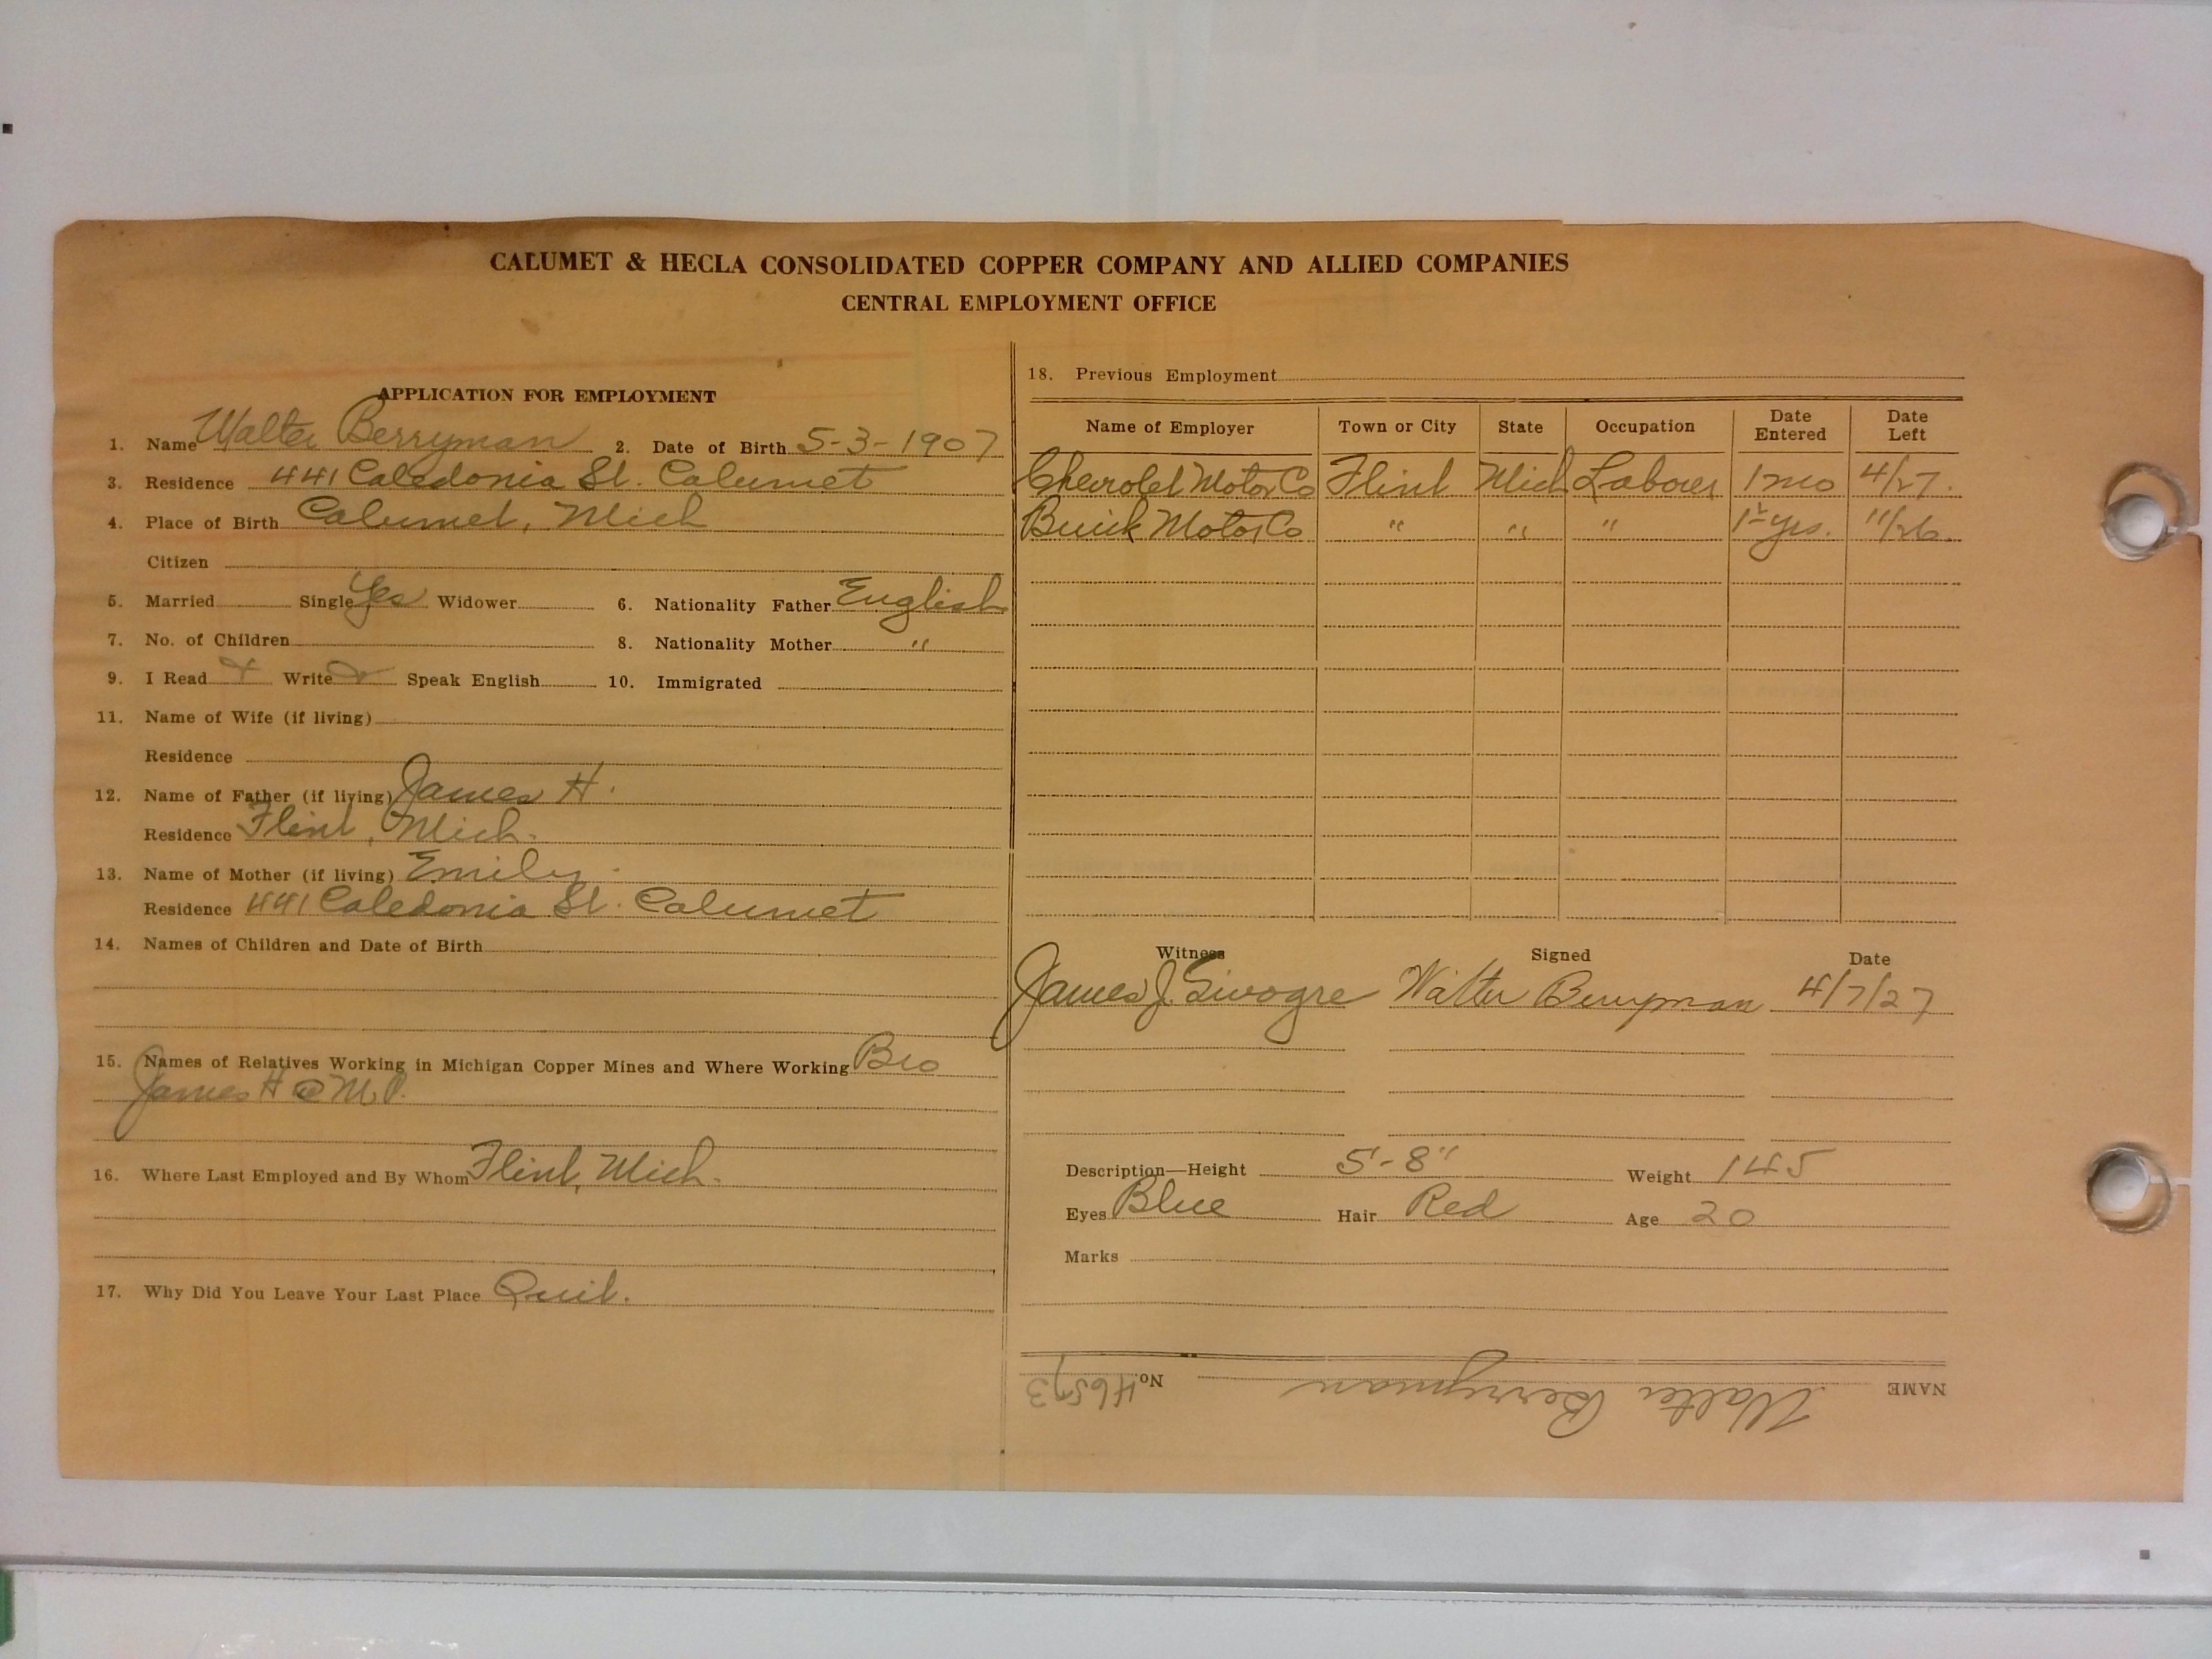 CALUMET & HECLA CONSOLIDATED COPPER COMPANY AND ALLIED COMPANIES
CENTRAL EMPLOYMENT OFFICE
APPLICATION FOR EMPLOYMENT
1. Name Walter Berryman 2. Date of Birth 5-3-1907
3. Residence 441 Caledonia St. Calumet
4. Place of Birth Calumet, Mich
Citizen
5. Married Single Yes Widower 6. Nationality Father English
7. No. of Children 8. Nationality Mother "
9. I Read Write Speak English 10. Immigrated
11. Name of Wife (if living)
Residence
12. Name of Father (if living) James H.
Residence Flint, Mich.
13. Name of Mother (if living) Emily
Residence 441 Caledonia St. Calumet
14. Names of Children and Date of Birth
15. Names of Relatives Working in Michigan Copper Mines and Where Working Bro
James H @ M.
16. Where Last Employed and By Whom Flint, Mich.
17. Why Did You Leave Your Last Place Quit.
18. Previous Employment
Name of Employer Town or City State Occupation Date Entered Date Left
Chevrolet Motor Co Flint Mich Laborer 1 mo 4/27.
Buick Motor Co " " " yrs. 11/26.
Witness Signed Date
James J. Walter Berryman 4/7/27
Description—Height 5'-8" Weight 145
Eyes Blue Hair Red Age 20
Marks
NAME Walter Berryman No. 46573